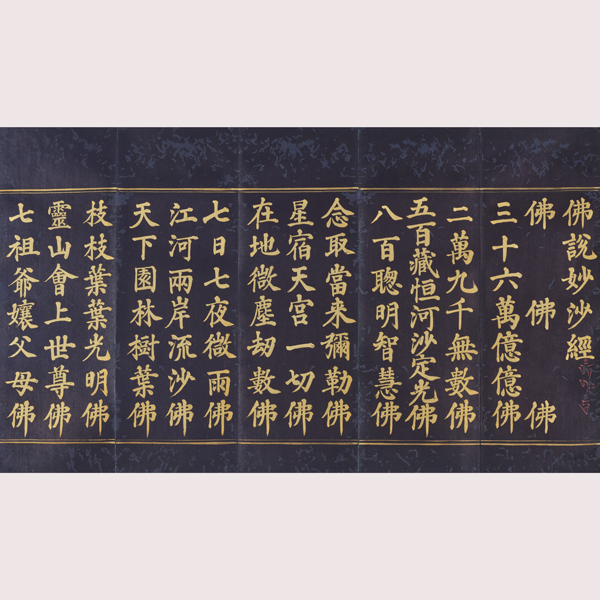 佛說妙沙經
佛佛佛
三十六萬億億佛
二萬九千無數佛
五百藏恒河沙定光佛
八百聰明智慧佛
念取當来彌勒佛
星宿天宮一切佛
在地微塵劫數佛
七日七夜微雨佛
江河兩岸流沙佛
天下園林樹葉佛
枝枝葉葉光明佛
靈山會上世尊佛
七祖爺孃父母佛